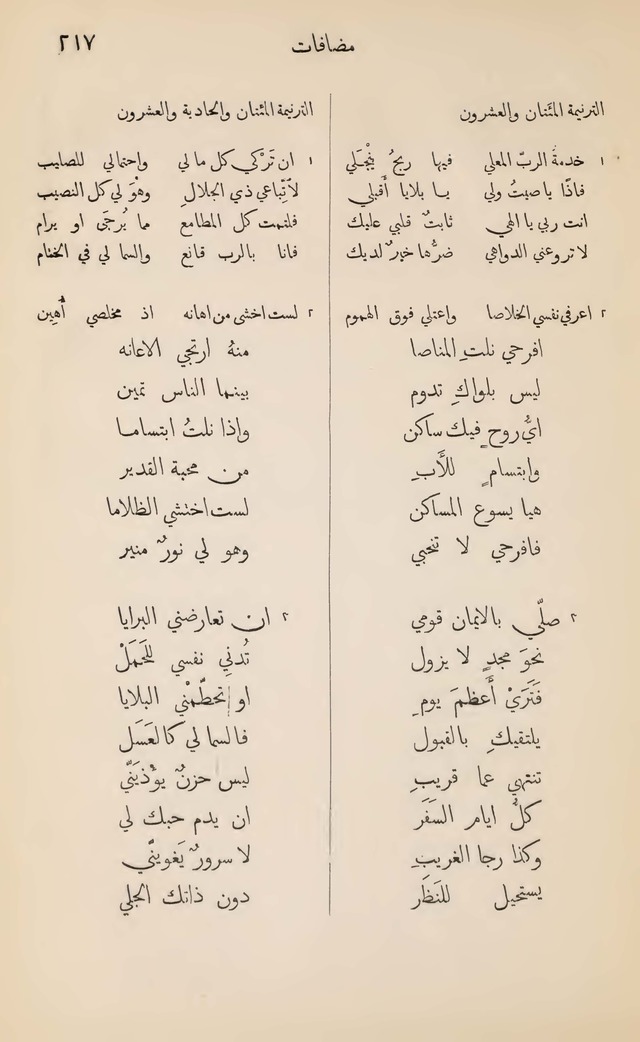 مضافات
٢١٧
الترنيمة المئتان والعشرون
١ خدمةُ الربّ المعلي فيها ربحُ يُنْجَلي
فاذًا يا صيتُ ولي يا بلايا أَقبلي
انت ربي يا الهي ثابتٌ قلبي عليك
لا تروعني الدواهي ضرُّها خيرٌ لديك
٢ اعرفي نفسي الخلاصا واعتلي فوق الهموم
افرحي نلتِ المناصا
ليس بلواكِ تدوم
ايُّ روحٍ فيك ساكن
وابتسامٍ للأَبِ
هيا يسوع المساكن
فافرحي لا تنحبي
٢ صلّي بالايمان قومي
نحوَ مجدٍ لا يزول
فَتَرَيْ أَعظمَ يومِ
يلتقيكِ بالقبول
تنتهي عما قريبِ
كلُّ ايام السَفَر
وكذا رجا الغريبِ
يستحيل للنَظَر
الترنيمة المئتان والحادية والعشرون
١ ان تَرْكي كل ما لي واحتمالي للصليب
لأتّباعي ذي الجلالِ وهوَ لي كل النصيب
فلتمت كل المطامع مما يُرجَى او يرام
فانا بالرب قانع والسما لي في الختام
٢ لست اخشى من اهانه اذ مخلصي أُهِين
منهُ ارتجي الاعانه
بينما الناس تمين
واذا نلتُ ابتساما
من محبة القدير
لست اختشي الظلاما
وهو لي نورٌ منير
٢ ان تعارضني البرايا
تُدنِي نفسي للحَمَلْ
او تحطّمْني البلايا
فالسما لي كالعَسَل
ليس حزنٌ يوْذيَنّي
ان يدم حبك لي
لا سرورٌ يَغوينّي
دون ذاتك الجلي